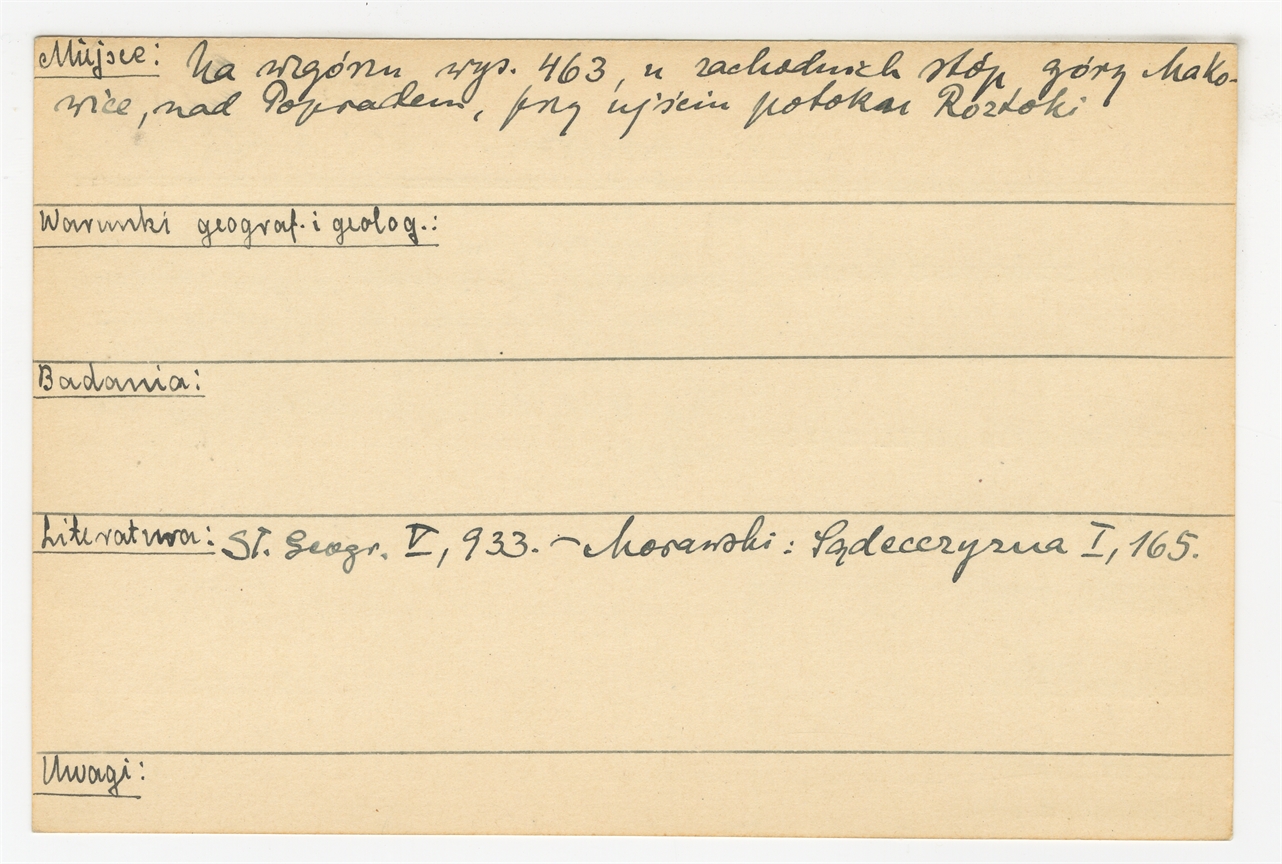 Miejsce: Na wzgórzu wys. 463, u zachodnich stóp góry Mako-
wice, nad Popradem, przy ujściu potoku Roztoki
Warunki geograf. i geolog.:
Badania:
Literatura: Sł. Geogr. V, 933. – Morawski: Sądecczyzna I, 165.
Uwagi: